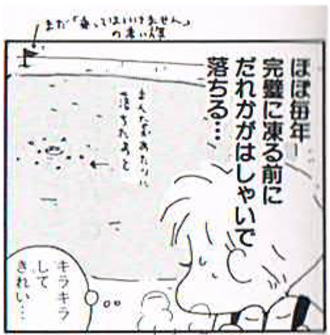 まだ「乗ってはいけません」
の赤い旗
ほぼ毎年
完璧に凍る前に
だれかがはしゃいで
落ちる…
まんなかあたりに
落ちたあと
キラキラ
して
きれい…